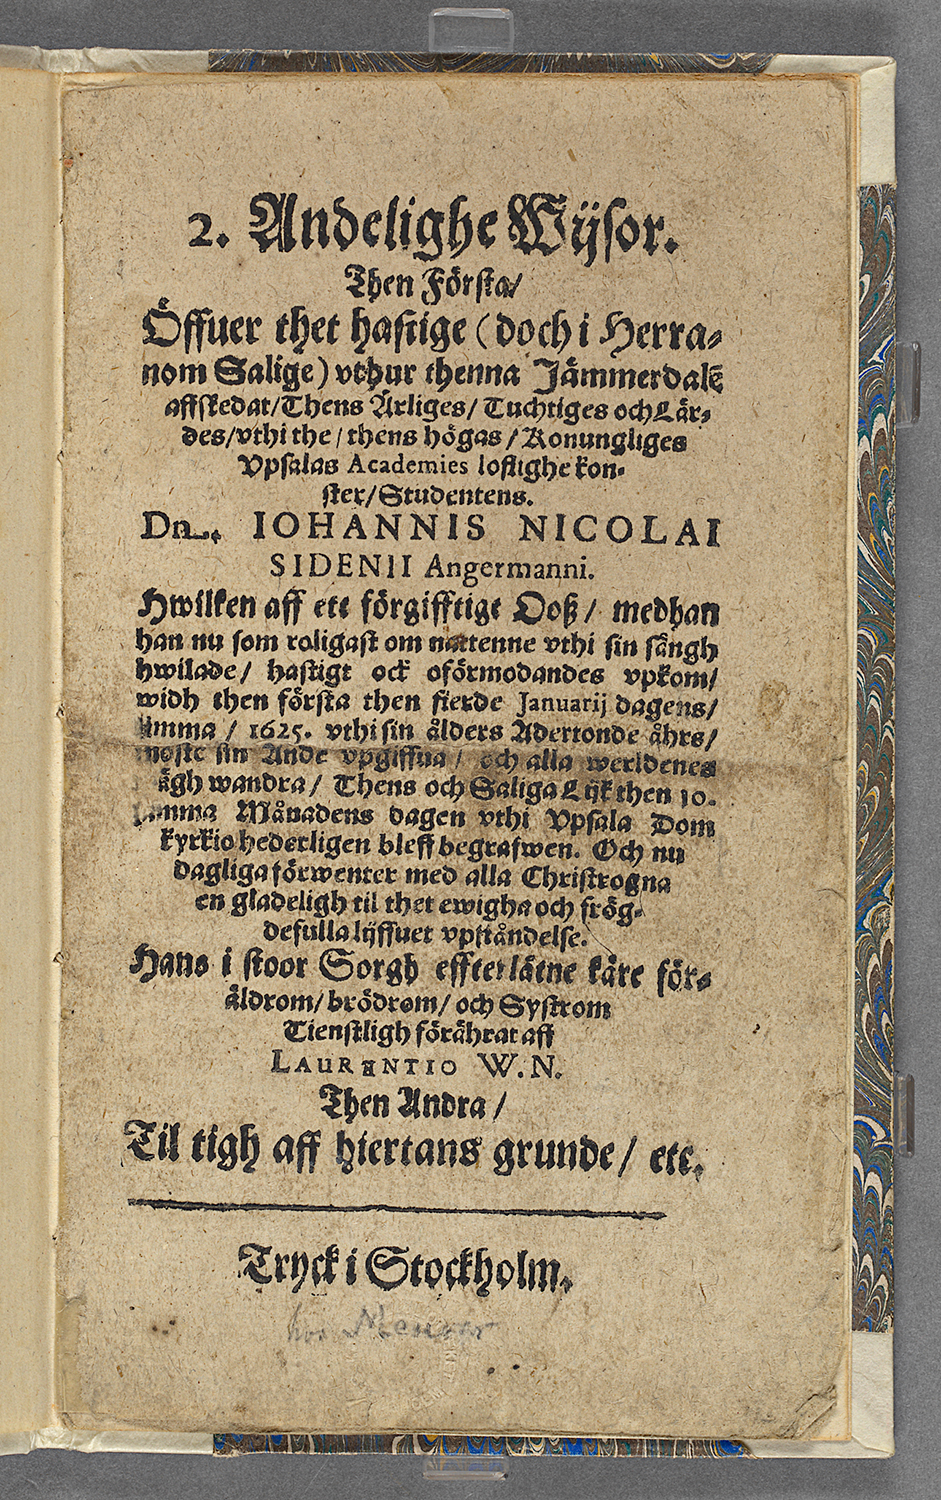 2. Andelighe Wijsor.
Then Första/
Öffuer thet hastige (doch i Herra-
nom Salige) vthur thenna Jämmerdalē
affskedat/Thens Ärliges/ Tuchtiges och Lär-
des/vthi the/thens högas/Konungliges
Vpsalas Academies loflighe kon-
ster/Studentens.
Dn. IOHANNIS NICOLAI
SIDENII Angermanni.
Hwilken aff ett förgifftigt Ooß/ medhan
han nu som roligast om nattenne vthi sin sängh
hwilade/ hastigt ock oförmodandes vpkom/
widh then första then fierde Januarij dagens/
timma / 1625. vthi sin ålders Adertonde åhrs/
moste sin Ande vpgiffua/ och alla werldenes
wägh wandra/ Thens och Saliga Lijk then 10.
samma Månadens dagen vthi Vpsala Dom
kyrkio hederligen bleff begrafwen. Och nu
dagliga förwenter med alla Christrogna
en gladeligh til thet ewigha och frög-
defulla lijffuet vpståndelse.
Hans i stoor Sorgh effterlätne käre för-
äldrom/brödrom/och Systrom
Tienstligh förährat aff
LAURENTIO W.N.
Then Andra/
Til tigh aff hiertans grunde/ etc.
Tryck i Stockholm.
hos Meurer